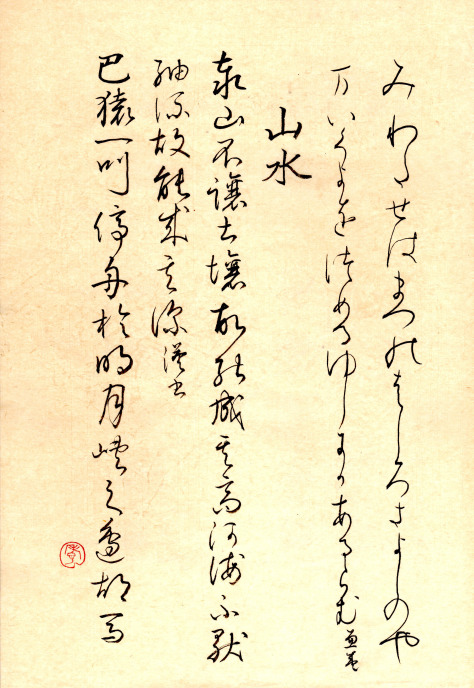 みわたせはまつのはしろきよしのや
万いくよをつめるゆきにかあるらむ 兼盛
山水
泰山不讓土壤故能成其高河海不厭
細流故能成其深 漢書
巴猿一叫停舟於明月峽之邊胡馬